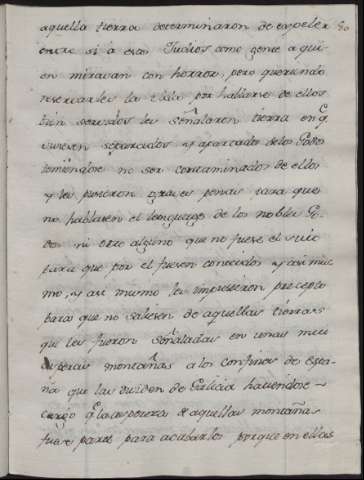 aquella tierra determinaron de expeler 80
entre si á esos Judios como gente a qui-
en miravan con horror, pero queriendo
reservarles la vida por hallarse de ellos
bien servidos les señalaron tierra en q.
viviesen separados, y apartados de los Godos
temiendose no ser contaminados de ellos
y les pusieron graves penas para que
no hablasen el lenguage de los nobles Go-
dos ni otro alguno que no fuese el suio
para que por el fuesen conocidos y asi mis-
mo, y asi mismo les impusieron precepto
para que no saliesen de aquellas tierras
que les fueron señaladas en unas mui
asperas montañas a los confines de Espa-
ña que las dividen de Galicia haciendose
cargo q. la aspereza de aquellas montañas
fuese parte para acabarlos porque en ellas